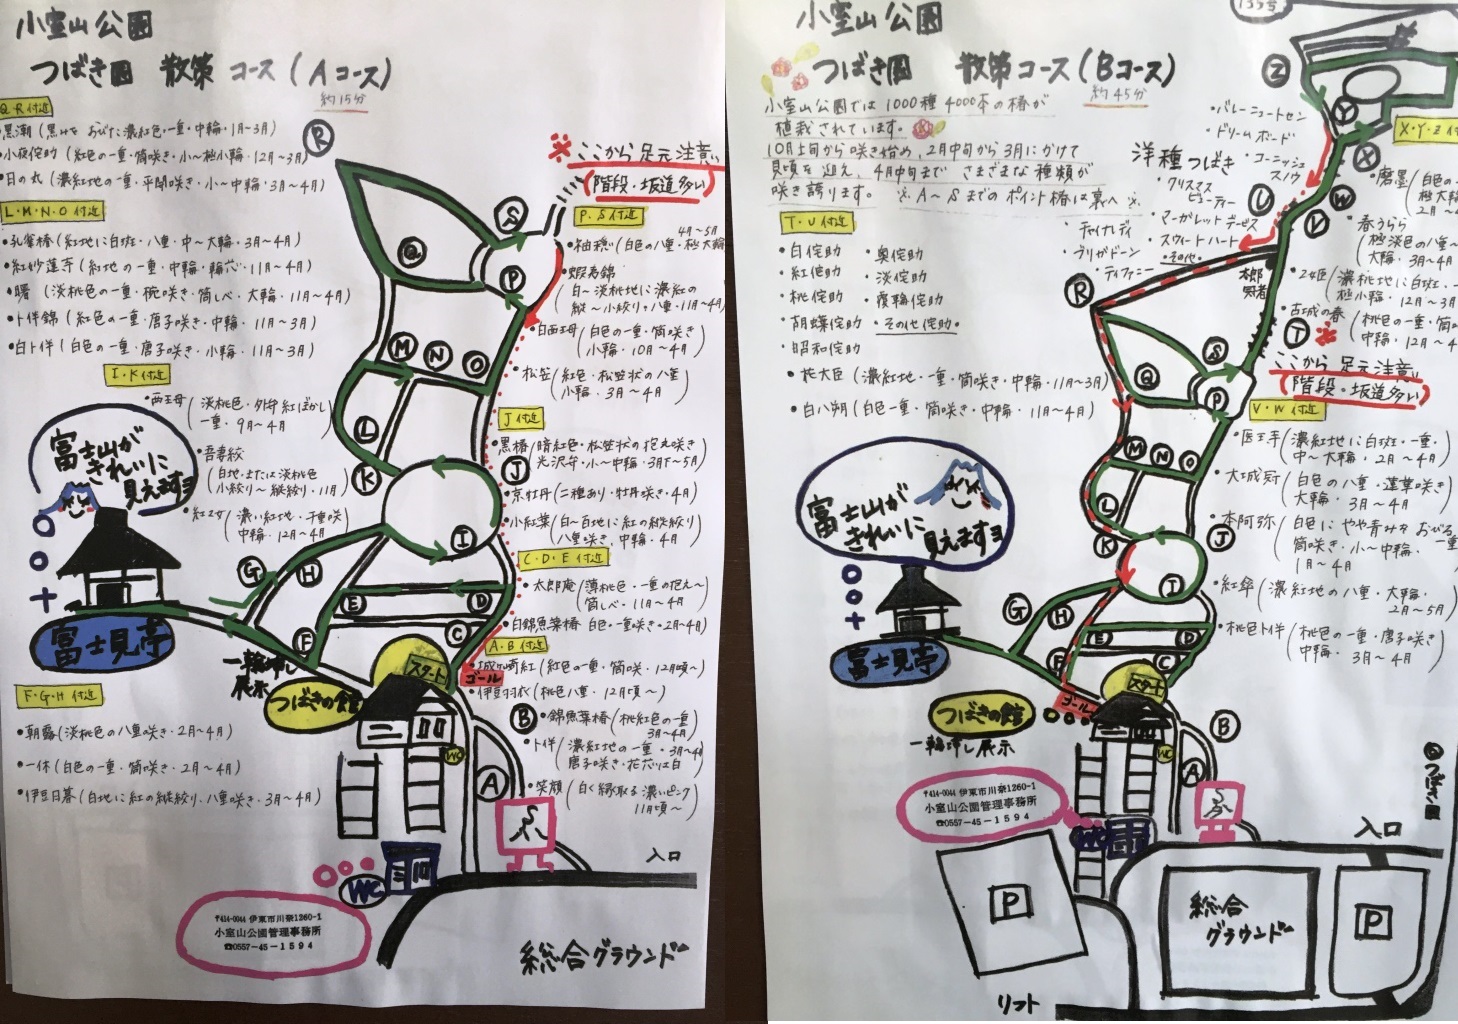 小室山公園
つばき園 散策コース(Aコース)
約15分
Q・R付近
・黒潮(黒みをおびた濃紅色・一重・中輪・1月〜3月)
・小夜侘助(紅色の一重・筒咲き・小〜極小輪・12月〜3月)
・日の丸(濃紅地の一重・平開咲き・小〜中輪・3月〜4月)
L・M・N・O付近
・孔雀椿(紅地に白斑・八重・中〜大輪・3月〜4月)
・紅妙蓮寺(紅地の一重・中輪・輪芯・11月〜4月)
・曙(淡桃色の一重・椀咲き・筒しべ・大輪・11月〜4月)
・卜伴錦(紅色の一重・唐子咲き・中輪・11月〜3月)
・白卜伴(白色の一重・唐子咲き・小輪・11月〜3月)
I・K付近
・西王母(淡桃色・外弁紅ぼかし
一重・9月〜4月)
・吾妻絞
(白地・または淡桃色
小絞り〜縦絞り・11月)
・紅乙女(濃い紅地・千重咲
中輪・12月〜4月)
富士山が
きれいに
見えますヨ
富士見亭
一輪挿し
展示
つばきの館
スタート
ゴール
F・G・H付近
・朝霧(淡桃色の八重咲き・2月〜4月)
・一休(白色の一重・筒咲き・2月〜4月)
・伊豆日暮(白地に紅の縦絞り、八重咲き・3月〜4月)
※ここから足元注意!
(階段・坂道多い)
P・S付近
4月〜5月
・袖隠し(白色の八重・極大輪
・蝦夷錦
(白〜淡桃地に濃紅の
縦〜小絞り・八重・11月〜4月)
・白西王母(白色の一重・筒咲き
小輪・10月〜4月)
・松笠(紅色・松笠状の八重
小輪・3月〜4月)
J付近
・黒椿(暗紅色・松笠状の抱え咲き
光沢弁・小〜中輪・3月下〜5月)
・京牡丹(二種あり・牡丹咲き・4月)
・小紅葉(白〜百地に紅の縦絞り
八重咲き、中輪・4月)
C・D・E付近
・太郎庵(薄桃色・一重の抱え〜
筒しべ・11月〜4月)
・白錦魚葉椿 白色・一重咲き・2月〜4月)
A・B付近
・城ヶ崎紅(紅色の一重・筒咲・12月頃〜)
・伊豆羽衣(桃色八重・12月頃〜)
・錦魚葉椿(桃紅色の一重
3月〜4月)
・卜伴(濃紅地の一重・3月〜4月
唐子咲き・花芯は白)
・笑顔(白く縁取る濃いピンク
11月頃〜)
R
S
Q
P
M N O
L
K
J
I
G H
E D
F C
B
A
WC
WC
入口
〒414-0044 伊東市川奈1260-1
小室山公園管理事務所
☎0557-45-1594
総合グラウンド
135号
小室山公園
つばき園 散策コース(Bコース)
約45分
小室山公園では1000種4000本の椿が
植栽されています。
10月上旬から咲き始め、2月中旬から3月にかけて
見頃を迎え、4月中旬までさまざまな種類が
咲き誇ります。 ※A〜Sまでのポイント椿は裏へ※
T・U付近
・白侘助
・紅侘助
・桃侘助
・胡蝶侘助
・昭和侘助
・奥侘助
・淡侘助
・覆輪侘助
・その他侘助・
・桃大臣(濃紅地・一重・筒咲き・中輪・11月〜3月)
・白八朔(白色一重・筒咲き・中輪・11月〜4月)
洋種つばき
・バレーニュートセン
・ドリームボード
・コーニッシュ
スノウ
・クリスマス
ビューティー
・マーガレットデービス
・スウィートハート
・その他・
・チャイナレディ
・ブリガドーン
・ティファニー
X・Y・Z付近
・磨墨(白色の
極大輪
2月〜
・春うらら
(極淡色の八重〜
大輪・3月〜4月
・乙女臣(濃桃地に白斑・一
極小輪・12月〜3月
・古城の春(桃色の一重・筒
中輪・12月〜
※
ここから足元注意!
(階段・坂道多い)
V・W付近
・医王手(濃紅地に白斑・一重・
中〜大輪・2月〜4月)
・大城冠(白色の八重・蓮華咲き
大輪・3月〜4月)
・本阿弥(白色にやや青みをおびる
筒咲き・小〜中輪・一重
1月〜4月)
・紅傘(濃紅地の八重・大輪・
2月〜5月)
・桃色卜伴(桃色の一重・唐子咲き
中輪・3月〜4月)
Z
Y
X
W
V
U
T
R
S
Q
P
M N O
L
K
J
I
G H
E D
F C
B
A
富士山が
きれいに
見えますヨ
富士見亭
つばきの館
一輪挿し展示
スタート
ゴール
WC
WC
〒414-0044 伊東市川奈1260-1
小室山公園管理事務所
☎0557-45-1594
つばき園
入口
P
総合
グラウンド
P
リフト